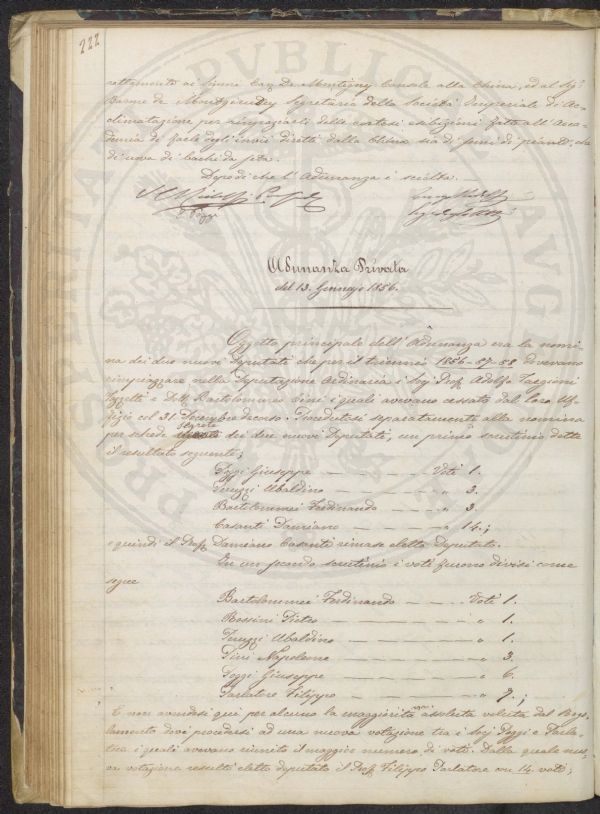 222
rettamente ai Sinni Cav. De Montigny Console alla China, ed al Sig.
Barone de Montgaudry Segretario della Società Imperiale di Ac-
climatazione per ringraziarli delle cortesi esibizioni fatte all'Acca-
demia di farle degl'invii diretti dalla China sia di semi di piante, che
di uova di bachi da seta.
Dopodiche l'Adunanza è sciolta.
Adunanza Privata
del 13. Gennajo 1856.
Oggetto principale dell'Adunanza era la nomi-
na dei due nuovi Deputati che per il triennio 1856-57-58 dovevano
rimpiazzare nella Deputazione Ordinaria i Sigi Prof. Adolfo Targioni
Tozzetti e Dott. Bartolommeo Cini i quali avevano cessato dal loro Uf-
fizio col 31. Decembre decorso. Procedutosi separatamente alla nomina
per schede segrete dei due nuovi Deputati, un primo scrutinio dette
il resultato seguente;
Poggi Giuseppe — Voti 1.
Peruzzi Ubaldino — " 3.
Bartolommei Ferdinando — " 3.
Casanti Damiano — " 14.;
e quindi il Prof. Damiano Casanti rimase eletto Deputato.
In un secondo scrutinio i voti furono divisi come
segue
Bartolommei Ferdinando — Voti 1.
Rossini Pietro — " 1.
Peruzzi Ubaldino — " 1.
Pini Napoleone — " 3.
Poggi Giuseppe — " 6.
Parlatore Filippo — " 9.;
E non avendosi quì per alcuno la maggiorità assoluta voluta dal Rego-
lamento dovè procedersi ad una nuova votazione tra i Sigi Poggi e Parla-
tore i quali avevano riunito il maggior numero di voti. Dalla quale nuo-
va votazione resultò eletto deputato il Prof. Filippo Parlatore con 14. voti;